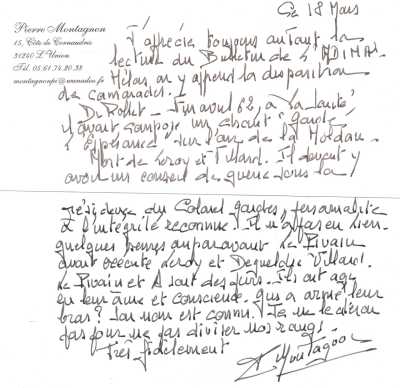 Pierre Montagnon
15, Côte de Cornaudric
31240 L'Union
Tél. 05.61.74.20.38
montagnonpi@wanadoo.fr
Ce 18 Mars
J'apprécie toujours autant la
lecture du Bulletin de l'ADIMAD
Hélas, on y apprend la disparition
de camarades.
Du Rollet - Fin avril 62, à la Santé,
il avait composé un chant
l'Espérance sur l'air de la Moldau.
Mort de Leroy et Villard. Il devait y
avoir un conseil de guerre sous la
présidence du Colonel Gardes, personnalité
à l'intégrité reconnue. Il n'a pas eu lieu.
quelques heures auparavant Le Pivain
avait exécuté Leroy et
Le Pivain et A sont des purs. Ils ont agi
en leur âme et conscience. Qui a armé leur
bras? Son nom est connu. Je ne le dirai
pas pour ne pas diviser nos rangs.
Très fidèlement
P Montagnon